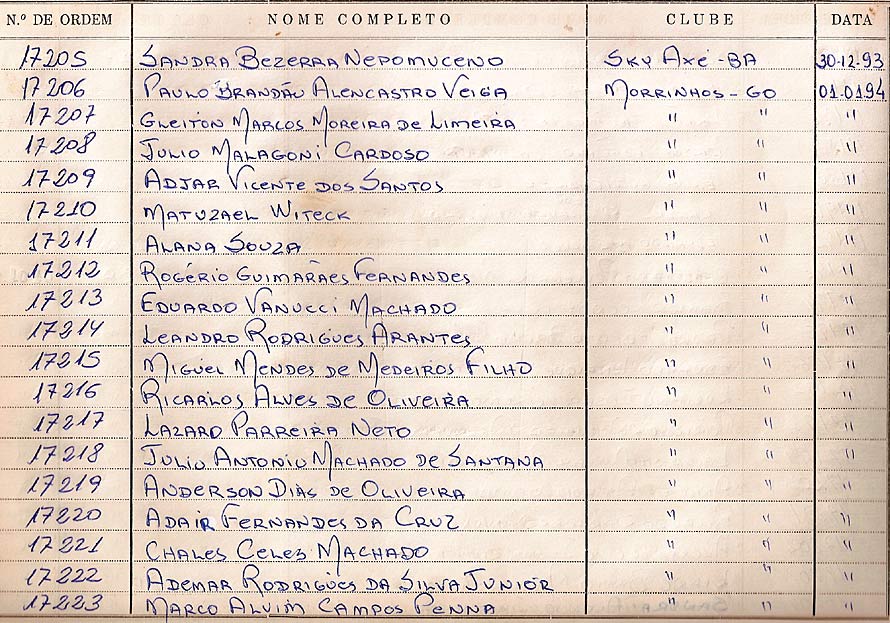 N.º DE ORDEM NOME COMPLETO CLUBE DATA
17205 SANDRA BEZERRA NEPOMUCENO SKY AXÉ-BA 30-12-93
17206 PAULO BRANDÃO ALENCASTRO VEIGA MORRINHOS-GO 01.0194
17207 GLEITON MARCOS MOREIRA DE LIMEIRA " " "
17208 JULIO MALAGONI CARDOSO " " "
17209 ADJAR VICENTE DOS SANTOS " " "
17210 MATUZAEL WITECK " " "
17211 ALANA SOUZA " " "
17212 ROGÉRIO GUIMARÃES FERNANDES " " "
17213 EDUARDO VANUCCI MACHADO " " "
17214 LEANDRO RODRIGUES ARANTES " " "
17215 MIGUEL MENDES DE MEDEIROS FILHO " " "
17216 RICARLOS ALVES DE OLIVEIRA " " "
17217 LAZARO PARREIRA NETO " " "
17218 JULIO ANTONIO MACHADO DE SANTANA " " "
17219 ANDERSON DIAS DE OLIVEIRA " " "
17220 ADAIR FERNANDES DA CRUZ " " "
17221 CHALES CELES MACHADO " " "
17222 ADEMAR RODRIGUES DA SILVA JUNIOR " " "
17223 MARCO ALVIM CAMPOS PENNA " " "